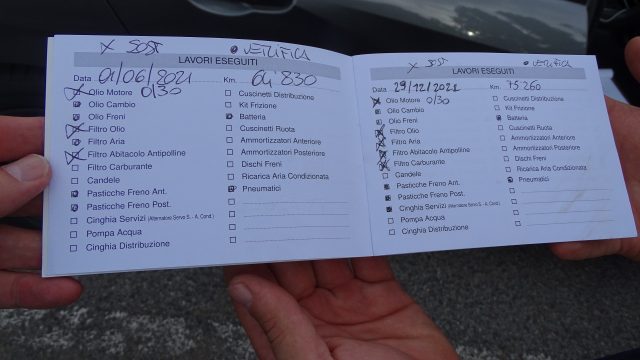 X SOST ● VERIFICA
LAVORI ESEGUITI
Data 01/06/2021 Km. 64 830
Olio Motore 0/30
Olio Cambio
Olio Freni
Filtro Olio
Filtro Aria
Filtro Abitacolo Antipolline
Filtro Carburante
Candele
Pasticche Freno Ant.
Pasticche Freno Post.
Cinghia Servizi (Alternatore Servo S. - A. Cond.)
Pompa Acqua
Cinghia Distribuzione
Cuscinetti Distribuzione
Kit Frizione
Batteria
Cuscinetti Ruota
Ammortizzatori Anteriore
Ammortizzatori Posteriore
Dischi Freni
Ricarica Aria Condizionata
Pneumatici
X SOST ● VERIFICA
LAVORI ESEGUITI
Data 29/12/2021 Km. 75 260
Olio Motore 0/30
Olio Cambio
Olio Freni
Filtro Olio
Filtro Aria
Filtro Abitacolo Antipolline
Filtro Carburante
Candele
Pasticche Freno Ant.
Pasticche Freno Post.
Cinghia Servizi (Alternatore Servo S. - A. Cond.)
Pompa Acqua
Cinghia Distribuzione
Cuscinetti Distribuzione
Kit Frizione
Batteria
Cuscinetti Ruota
Ammortizzatori Anteriore
Ammortizzatori Posteriore
Dischi Freni
Ricarica Aria Condizionata
Pneumatici